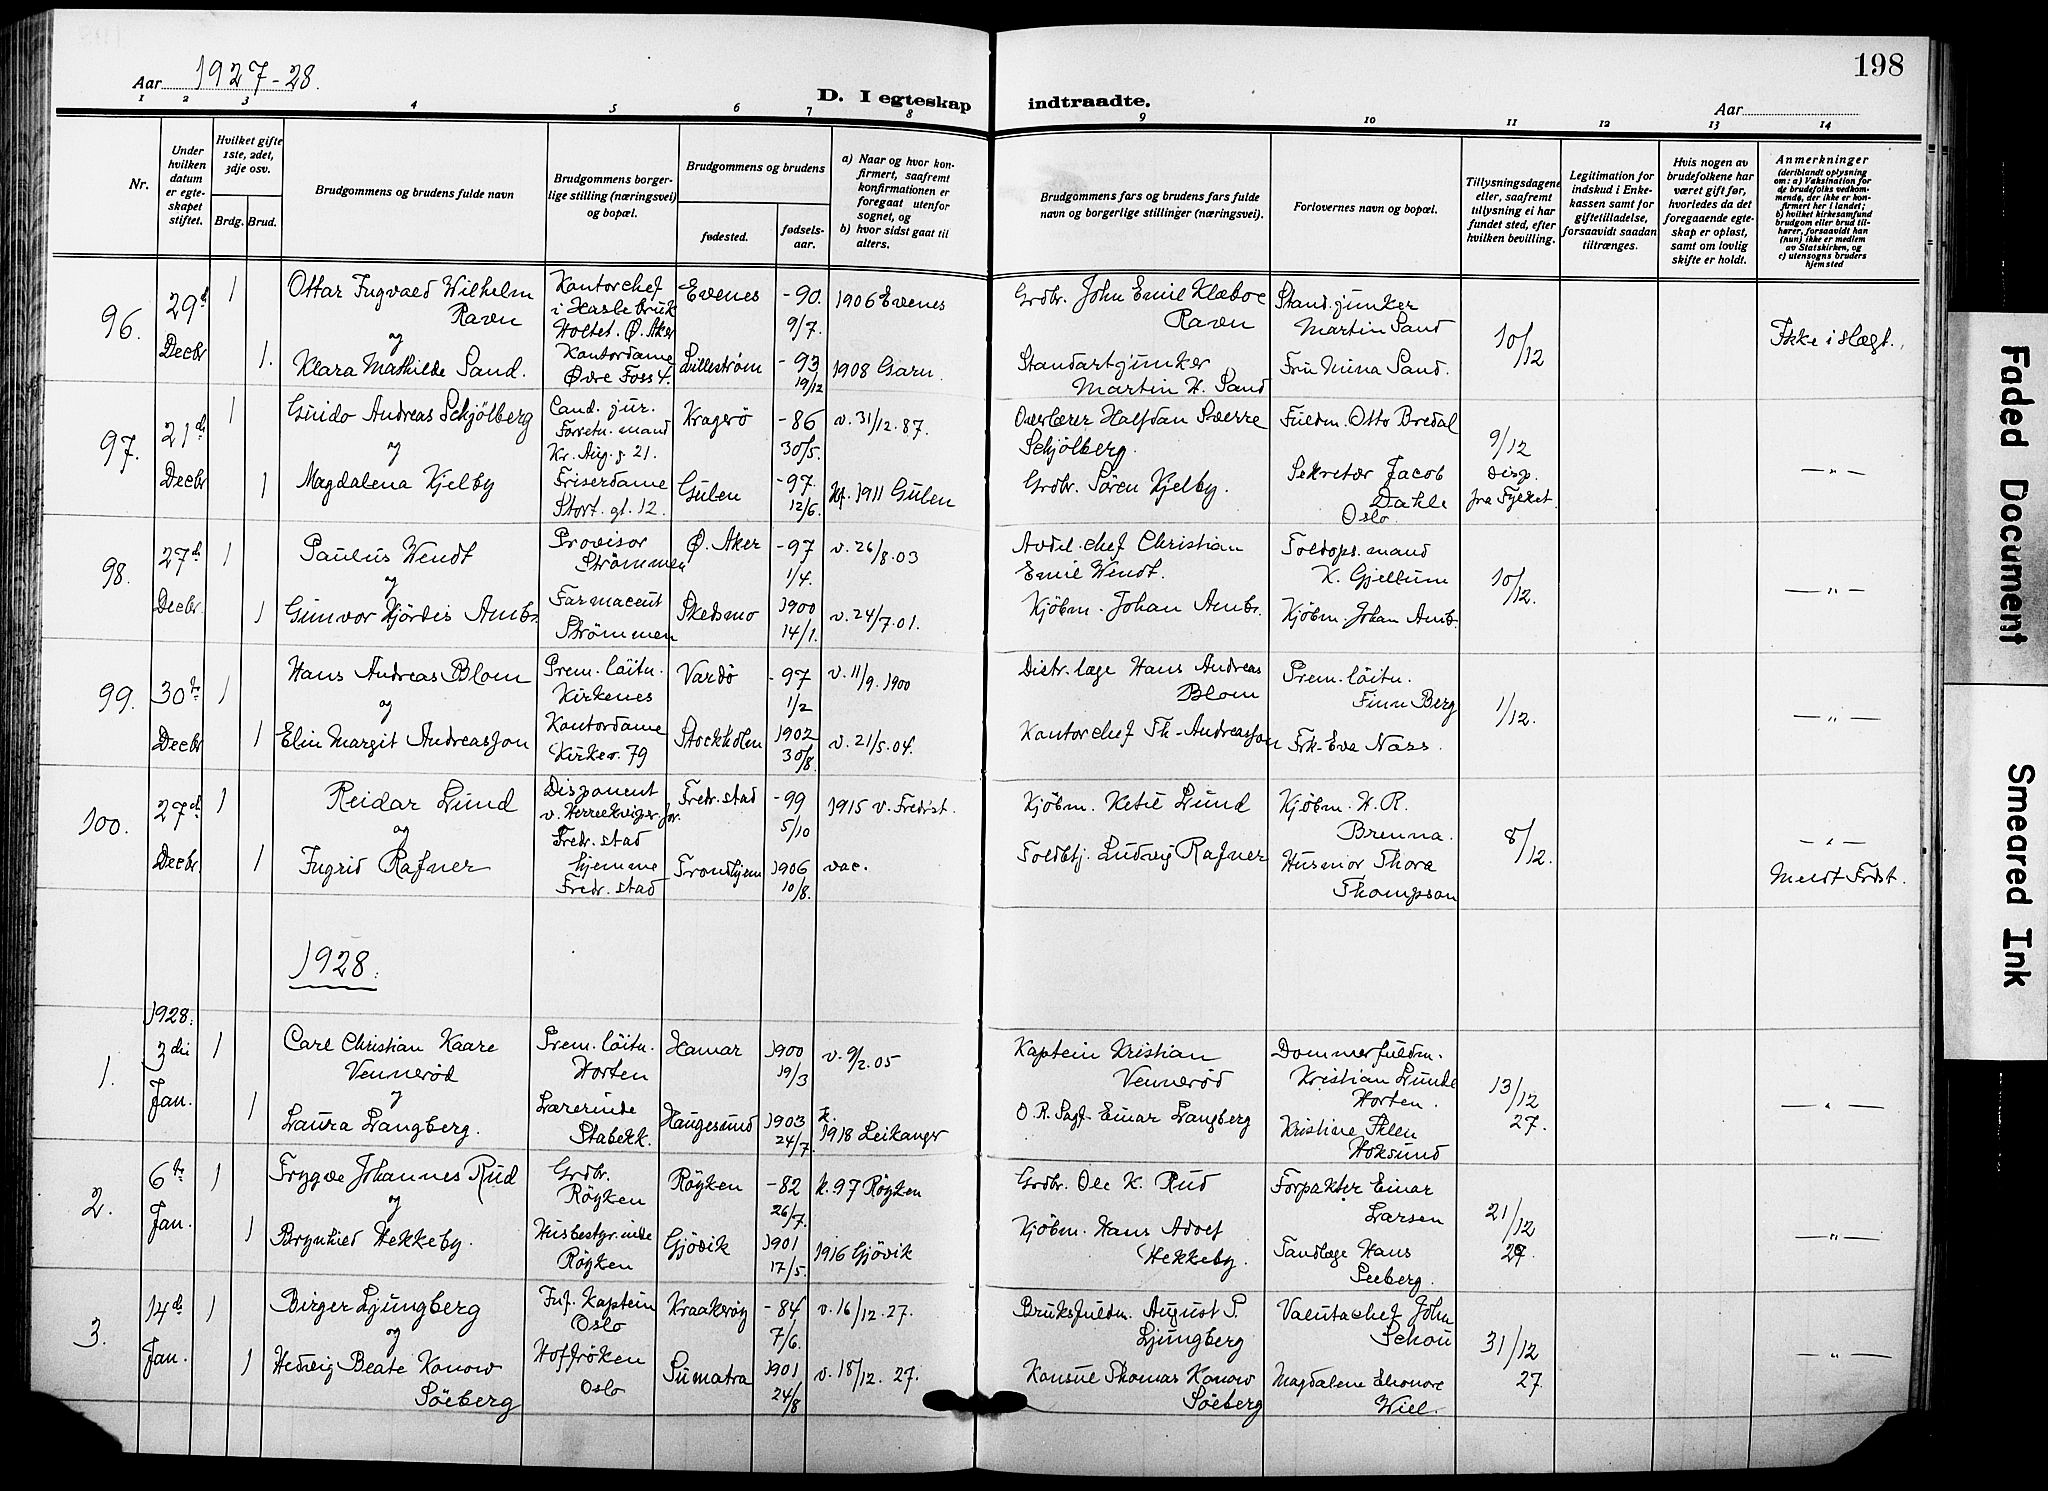 198
Aar 1927-28.
D. I egteskap
indtraadte.
Aar
1 2 3 4 5 6 7 8
9 10 11 12 13 14
Nr.
Under hvilken datum er egteskapet stiftet.
Hvilket gifte 1ste, 2det, 3dje osv.
Brdg. Brud.
Brudgommens og brudens fulde navn
Brudgommens borgerlige stilling (næringsvei) og bopæl.
Brudgommens og brudens
fødested.
fødselsaar.
a) Naar og hvor konfirmert, saafremt konfirmationen er foregaat utenfor sognet, og
b) hvor sidst gaat til alters.
Brudgommens fars og brudens fars fulde navn og borgerlige stillinger (næringsvei).
Forlovernes navn og bopæl.
Tillysningsdagene eller, saafremt tillysning ei har fundet sted, efter hvilken bevilling.
Legitimation for indskud i Enkekassen samt for giftetilladelse, forsaavidt saadan tiltrænges.
Hvis nogen av brudefolkene har været gift før, hvorledes da det foregaaende egteskap er opløst, samt om lovlig skifte er holdt.
Anmerkninger
(deriblandt oplysning om: a) Vaksination for de brudefolks vedkommende, der ikke er konfirmert her i landet;
b) hvilket kirkesamfund brudgom eller brud tilhører, forsaavidt han (hun) ikke er medlem av Statskirken, og
c) utensogns bruders hjemsted
96. 29d Decbr 1 Ottar Ingvald Wilhelm Ravn
Kontorchef i Hasle bruk Holtet. Ø. Aker
Evenes -90. 9/7. 1906 Evenes
Grdbr. John Emil Klæboe Ravn
Stand.junker Martin Sand
10/12
Ikke i slegt.
og
1. Klara Mathilde Sand.
Kontordame Øvre Foss 4.
Lillestrøm -93 19/12 1908 Garn.
Standartjunker Martin H. Sand
Fru Mina Sand.
97. 21d Decbr 1 Guido Andreas Schjölberg
Cand. jur. Forretn. mand Kr. Aug. g 21.
Kragerö -86 30/5. v. 31/12. 87.
Overlærer Halfdan Sverre Schjölberg.
Fuldm. Otto Bredal
9/12 disp. fra Fylket.
— " —
og
1 Magdalena Kjelby
Friserdame Stort. gt. 12.
Gulen -97. 12/6. kf. 1911 Gulen
Grdbr. Sören Kjelby.
Sekretær Jacob Dahle Oslo.
98. 27d Decbr. 1 Paulus Wendt
Provisor Strömmen
Ø. Aker -97 1/4. v. 26/8.03
Avdel.chef Christian Emil Wendt.
Toldops.mand K. Gjellum
10/12.
— " —
og
1 Gunvor Hjördis Ambs
Farmaceut Strömmen
Skedsmo 1900 14/1. v. 24/7.01.
Kjöbm. Johan Ambs.
Kjöbm. Johan Amb.
99. 30te Decbr 1 Hans Andreas Blom
Prem.löitn. Kirkenes
Vardö -97 1/2 v. 11/9. 1900
Distr.læge Hans Andreas Blom
Prem.löitn. Finn Berg
1/12.
— " —
og
1 Elin Margit Andreasson
Kontordame Kirkev. 79
Stockholm 1902 30/8. v. 21/5.04.
Kontorchef Th. Andreasson
Frk. Eva Nass.
100. 27d Decbr. 1 Reidar Lund
Disponent Fredr.stad
Fredr.stad -99 5/10 1915 v. Fredrst.
Kjöbm. Ketil Lund
Kjöbm. H. R. Brenna.
8/12.
— " —
og
1 Ingrid Rafner
hjemme Fredr.stad
Trondhjem 1906 10/8. vac.
Toldbtj. Ludvig Rafner
Husmor Thora Thompson
Meldt Frdst.
1928.
1928.
1. 3die Jan. 1 Carl Christian Kaare Vennerød
Prem.löitn. Horten
Hamar 1900 19/3 v. 9/2.05
Kaptein Kristian Vennerød
Dommerfuldm. Kristian Lunde Horten.
13/12 27.
— " —
og
1 Laura Langberg.
Lærerinde Stabekk.
Haugesund 1903 24/7. k. 1918 Leikanger
O.R. Sagf. Einar Langberg
Kristine Hoksund
2. 6te Jan. 1 Trygve Johannes Rud
Grdbr. Röyken
Röyken -82 26/7. k. 97 Röyken
Grdbr. Ole K. Rud
Forpakter Einar Larsen
21/12 27.
— " —
og
1 Brynhild Hekkeby.
Husbestyr.inde Röyken
Gjövik 1901 17/5. 1916 Gjövik
Kjöbm. Hans Adolf Hekkeby.
Tandlæge Hans Seeberg.
3. 14d Jan. 1 Birger Ljungberg
Inf. Kaptein Oslo
Kraakeröy -84 7/6. v. 16/12.27.
Bruksfuldm. August P. Ljungberg
Valutachef John Schou
31/12 27.
— " —
og
1 Hedvig Beate Konow Söeberg
Hoffröken Oslo
Sumatra 1901 24/8 v. 18/12. 27.
Konsul Thomas Konow Söeberg
Magdalene Elenore Wiel.
Faded Document
Smeared Ink